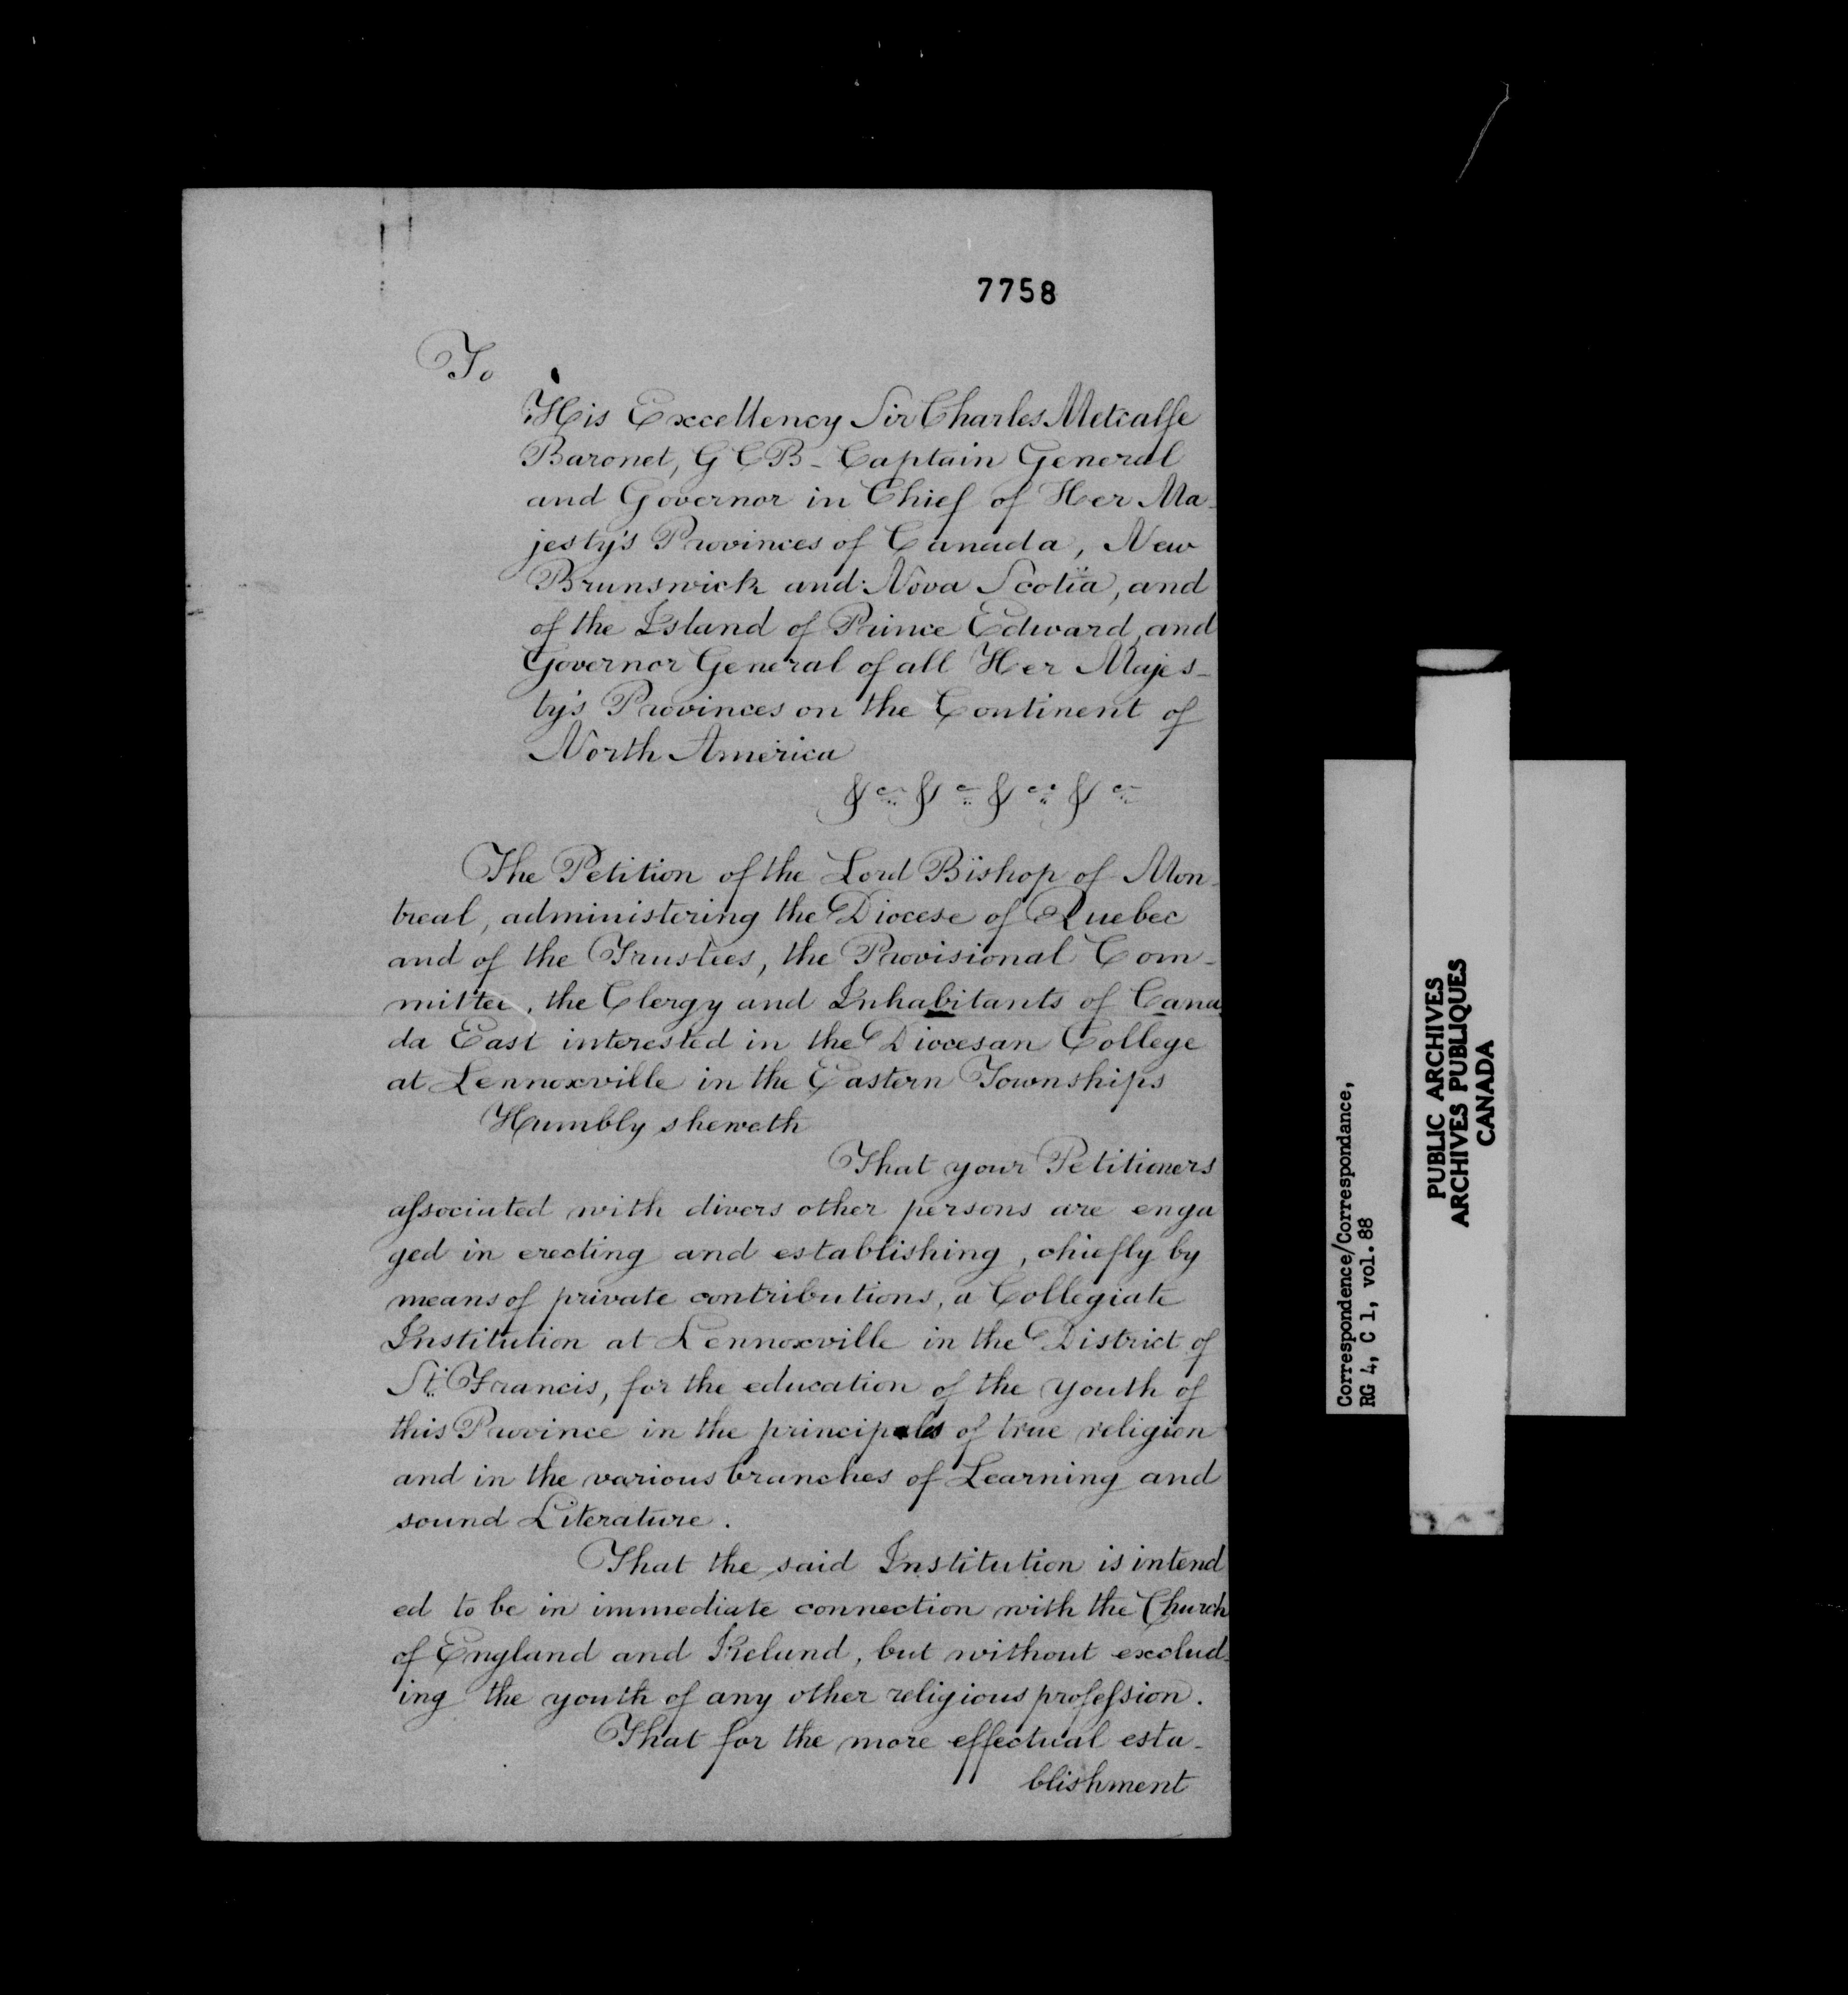 7758
To
His Excellency Sir Charles Metcalfe
Baronet, GCB - Captain General
and Governor in Chief of Her Ma-
jesty's Provinces of Canada, New
Brunswick and Nova Scotia, and
of the Island of Prince Edward, and
Governor General of all Her Majes-
ty's Provinces on the Continent of
North America
&c &c &c &c
The Petition of the Lord Bishop of Mon-
treal, administering the Diocese of Quebec
and of the Trustees, the Provisional Com-
mittee, the Clergy and Inhabitants of Cana-
da East interested in the Diocesan College
at Lennoxville in the Eastern Townships
Humbly sheweth
That your Petitioners
associated with divers other persons are enga
ged in erecting and establishing, chiefly by
means of private contributions, a Collegiate
Institution at Lennoxville in the District of
St. Francis, for the education of the youth of
this Province in the principles of true religion
and in the various branches of Learning and
sound Literature.
That the said Institution is intend
ed to be in immediate connection with the Church
of England and Ireland, but without exclud-
ing the youth of any other religious profession.
That for the more effectual esta-
blishment
Correspondence/Correspondance,
RG 4, C 1, vol. 88
PUBLIC ARCHIVES
ARCHIVES PUBLIQUES
CANADA